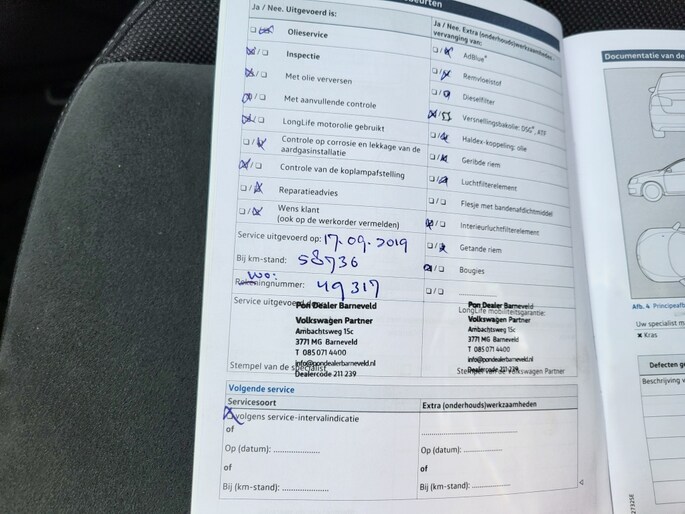 Ja / Nee. Uitgevoerd is:
Olieservice
Inspectie
Met olie verversen
Met aanvullende controle
LongLife motorolie gebruikt
Controle op corrosie en lekkage van de
aardgasinstallatie
Controle van de koplampafstelling
Reparatieadvies
Wens klant
(ook op de werkorder vermelden)
Service uitgevoerd op: 17.09.2019
Bij km-stand: 58736
WO:
Rekeningnummer: 49317
Service uitgevoerd door:
Pon Dealer Barneveld
Volkswagen Partner
Ambachtsweg 15c
3771 MG Barneveld
T 085 071 4400
info@pondealerbarneveld.nl
Dealercode 211 239
Stempel van de specialist
Ja / Nee. Extra (onderhouds)werkzaamheden
vervanging van:
AdBlue®
Remvloeistof
Dieselfilter
Versnellingsbakolie: DSG®, ATF
Haldex-koppeling: olie
Geribde riem
Luchtfilterelement
Flesje met bandenafdichtmiddel
Interieurluchtfilterelement
Getande riem
Bougies
Pon Dealer Barneveld
LongLife mobiliteitsgarantie:
Volkswagen Partner
Ambachtsweg 15c
3771 MG Barneveld
T 085 071 4400
info@pondealerbarneveld.nl
Dealercode 211 239
Stempel van de Volkswagen Partner
Volgende service
Servicesoort
volgens service-intervalindicatie
of
Op (datum): ....................
of
Bij (km-stand): ....................
Extra (onderhouds)werkzaamheden
Op (datum): ................
of
Bij (km-stand): ................
Documentatie van de
Afb. 4 Principeafb
Uw specialist m
✖ Kras
Defecten ge
Beschrijving v